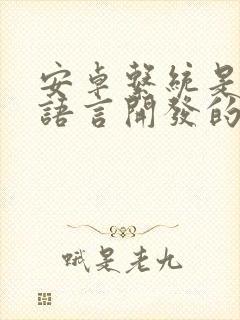 安卓繫統是
語言開發的
哦是老九